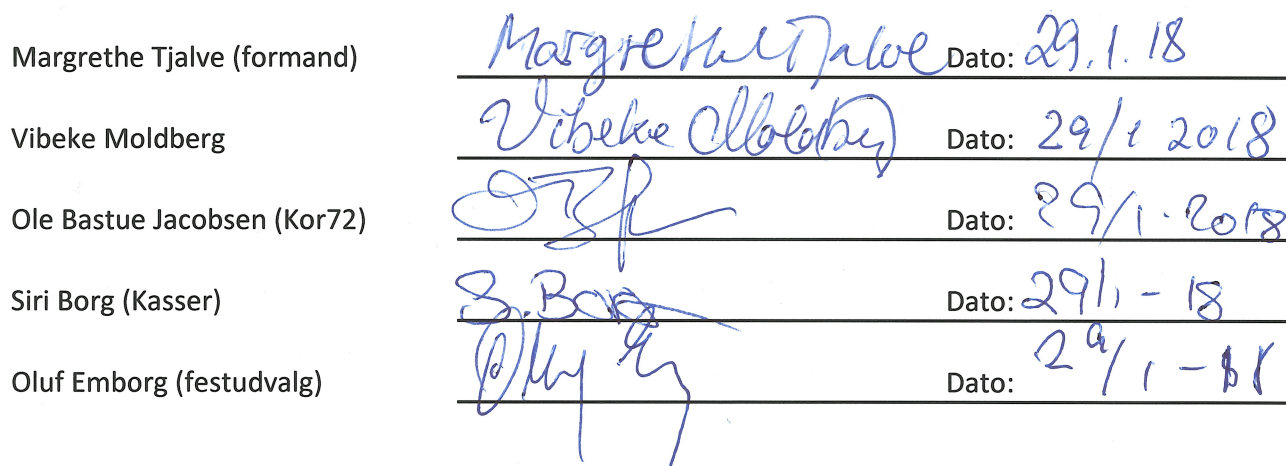 Margrethe Tjalve (formand) Margrethe Tjalve Dato: 29.1.18
Vibeke Moldberg Vibeke Moldberg Dato: 29/1 2018
Ole Bastue Jacobsen (Kor72) Dato: 29/1-2018
Siri Borg (Kasser) S. Borg Dato: 29/1-18
Oluf Emborg (festudvalg) Dato: 29/1-18